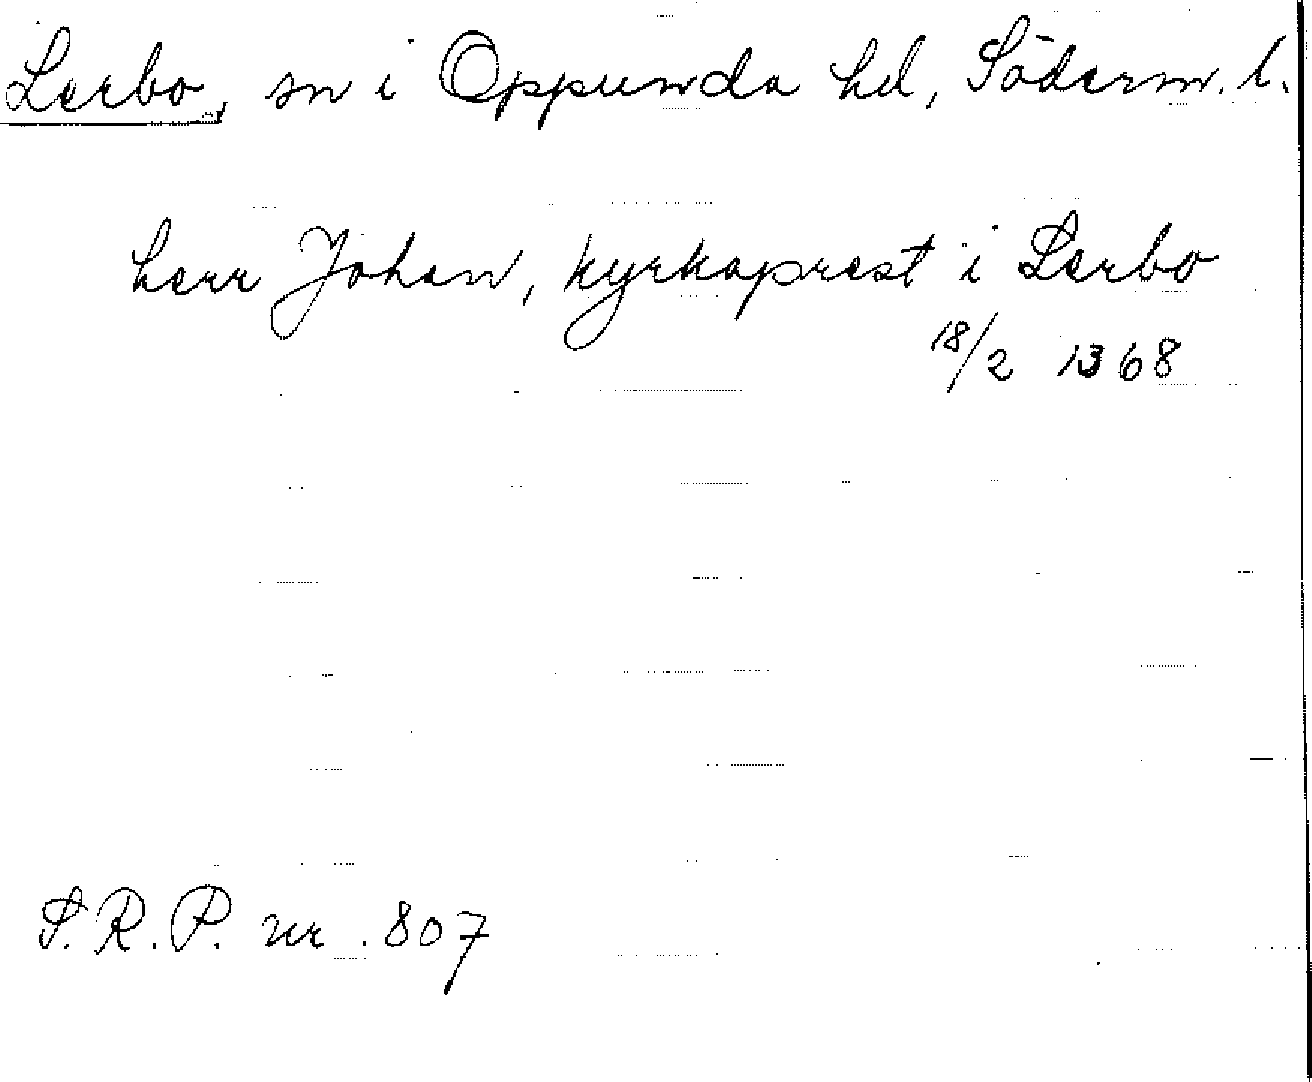 Lerbo, sn i Oppunda hd, Söderm. l.
herr Johan, kyrkaprest i Lerbo
18/2 1368
S.R.P. nr. 807